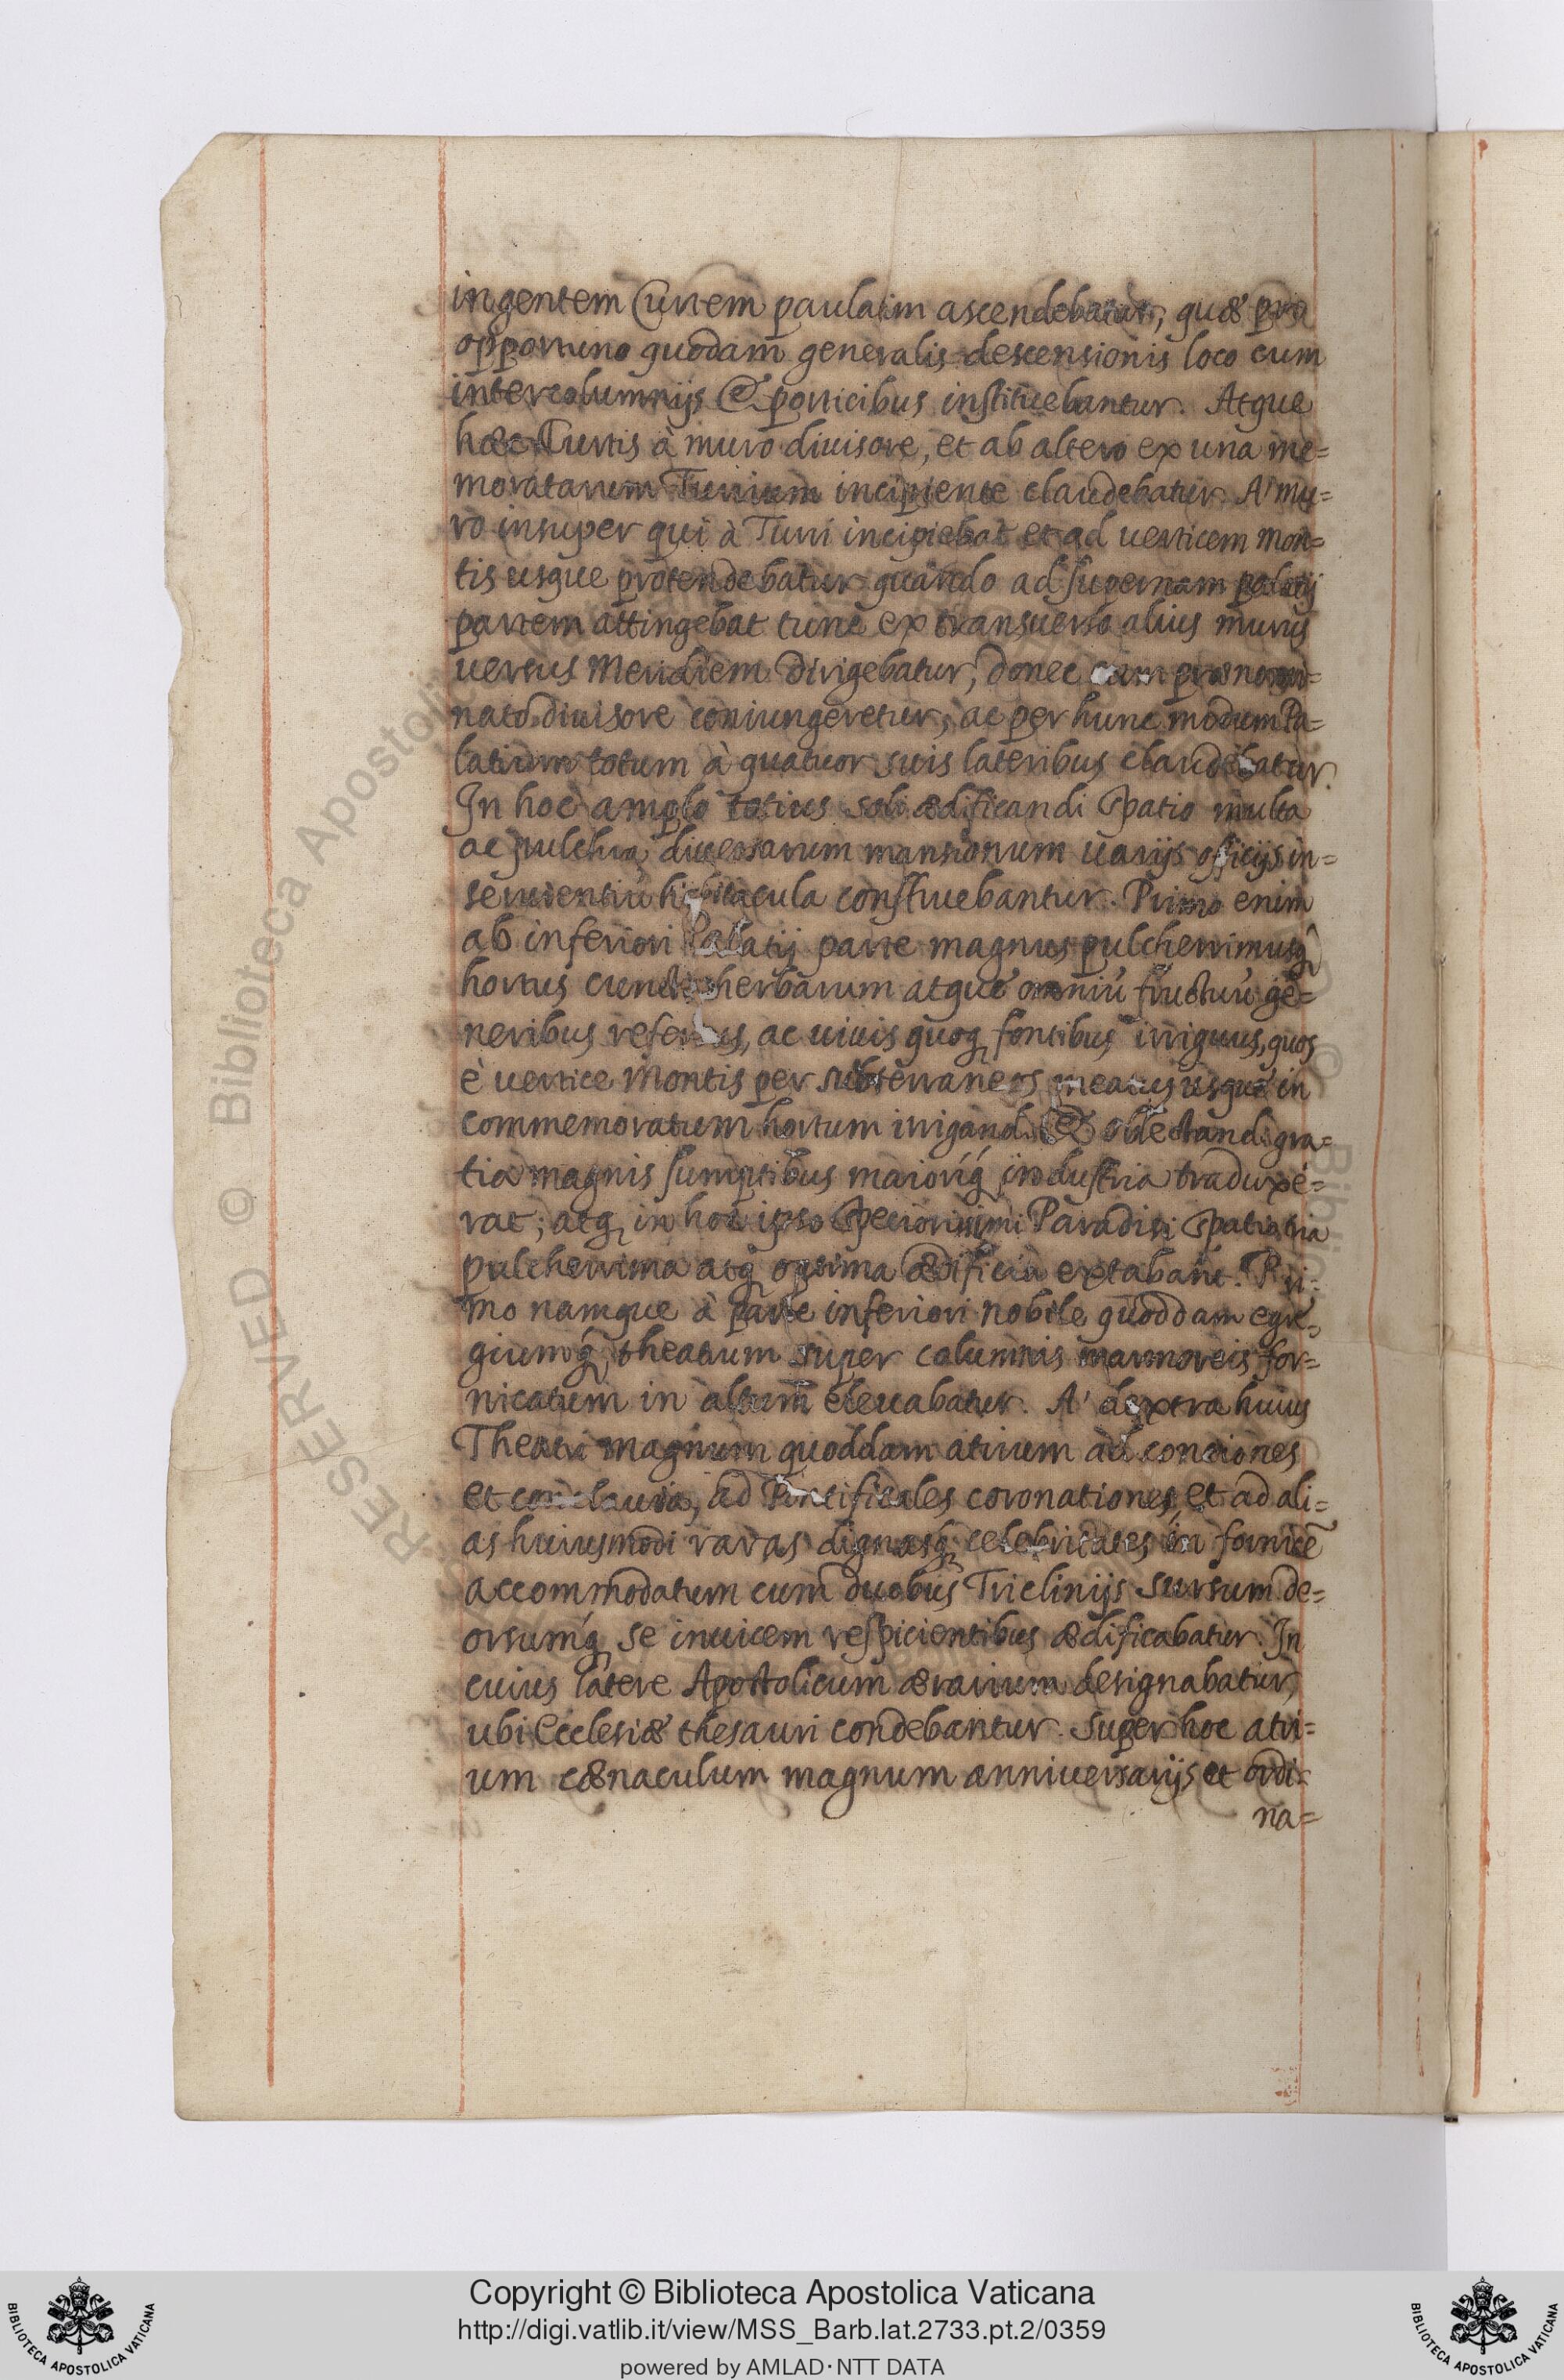 ingentem Curtem paulatim ascendebatur, quæ pro
opportuno quodam generalis descensionis loco cum
intercolumnijs & porticibus instituebantur. Atque
hæc Curtis à muro diuisore, et ab altero ex una me=
moratarum Turrium incipiente claudebatur. A' mu=
ro insuper qui à Turri incipiebat et ad uerticem mon=
tis usque protendebatur quando ad supernam palatij
partem attingebat tunc ex transuerso alius murus
uersus Meridiem dirigebatur, donec cum prænomi=
nato diuisore coniungeretur, ac per hunc modum Pa=
latium totum à quatuor suis lateribus claudebatur.
In hoc amplo totius soli ædificandi spatio multa
ac pulchra diuersarum mansionum uarijs officijs in=
seruientiū habitacula construebantur. Primo enim
ab inferiori Palatij parte magnus pulcherrimusq̃
hortus cunctis herbarum atque omniū fructuū ge=
neribus refertus, ac uiuis quoq fontibus irriguus, quos
è uertice Montis per subterraneos meatus usque in
commemoratum hortum irrigandi & oblectandi gra=
tia magnis sumptibus maioríq́ industria traduxe=
rat; atq in hoc ipso speciosissimi Paradisi spatio tria
pulcherrima atq́ optima ædificia extabant. Pri=
mo namque à parte inferiori nobile quoddam egre=
giumq́ theatrum super columnis marmoreis for=
nicatum in altum eleuabatur. A' dextra huius
Theatri magnum quoddam atrium ad conciones
et conclauia, ad Pontificales coronationes, et ad ali=
as huiusmodi raras dignasq́ celebritates in fornicē
accommodatum cum duobus Triclinijs sursum de=
orsumq́ se inuicem respicientibus ædificabatur. In
cuius latere Apostolicum ærarium designabatur,
ubi Ecclesiæ thesauri condebantur. Super hoc atri=
um cænaculum magnum anniuersarijs et ordi=
na=
RESERVED © Biblioteca Apostolica
© Biblio
Copyright © Biblioteca Apostolica Vaticana
http://digi.vatlib.it/view/MSS_Barb.lat.2733.pt.2/0359
powered by AMLAD·NTT DATA
BIBLIOTECA APOSTOLICA VATICANA
BIBLIOTECA APOSTOLICA VATICANA